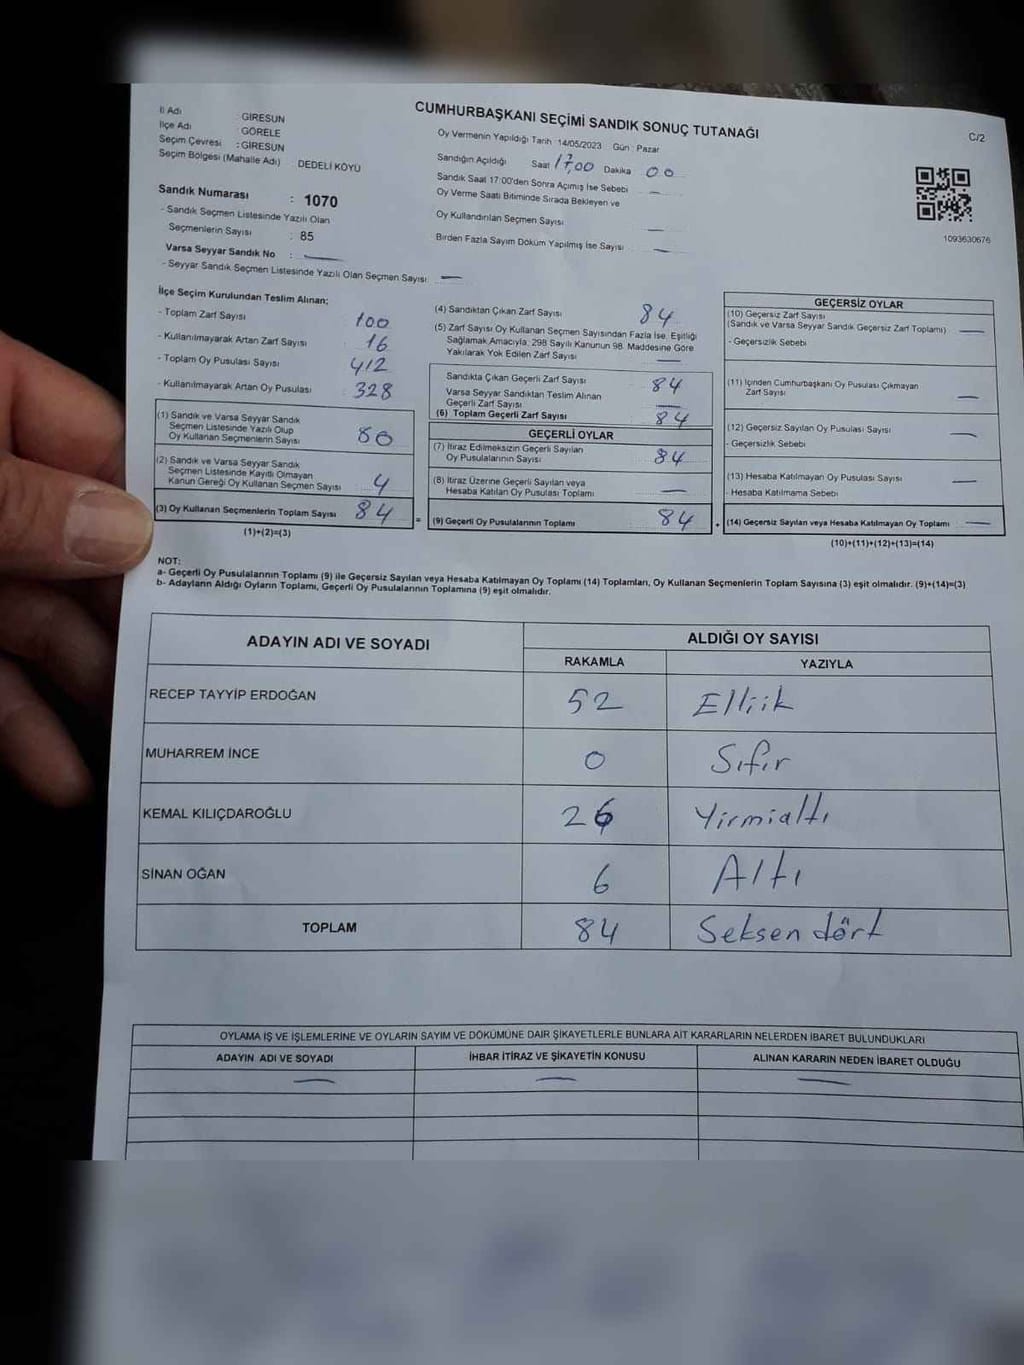 CUMHURBAŞKANI SEÇİMİ SANDIK SONUÇ TUTANAĞI
C/2
İl Adı : GİRESUN
İlçe Adı : GÖRELE
Seçim Çevresi : GİRESUN
Seçim Bölgesi (Mahalle Adı) DEDELİ KÖYÜ
Sandık Numarası : 1070
- Sandık Seçmen Listesinde Yazılı Olan
Seçmenlerin Sayısı : 85
Varsa Seyyar Sandık No : —
- Seyyar Sandık Seçmen Listesinde Yazılı Olan Seçmen Sayısı —
Oy Vermenin Yapıldığı Tarih 14/05/2023 Gün : Pazar
Sandığın Açıldığı Saat 17,00 Dakika 00
Sandık Saat 17:00'den Sonra Açımış İse Sebebi —
Oy Verme Saati Bitiminde Sırada Bekleyen ve
Oy Kullandırılan Seçmen Sayısı —
Birden Fazla Sayım Döküm Yapılmış İse Sayısı —
1093630676
İlçe Seçim Kurulundan Teslim Alınan;
- Toplam Zarf Sayısı 100
- Kullanılmayarak Artan Zarf Sayısı 16
- Toplam Oy Pusulası Sayısı 412
- Kullanılmayarak Artan Oy Pusulası 328
(1) Sandık ve Varsa Seyyar Sandık
Seçmen Listesinde Yazılı Olup
Oy Kullanan Seçmenlerin Sayısı 80
(2) Sandık ve Varsa Seyyar Sandık
Seçmen Listesinde Kayıtlı Olmayan
Kanun Gereği Oy Kullanan Seçmen Sayısı 4
(3) Oy Kullanan Seçmenlerin Toplam Sayısı 84
(1)+(2)=(3)
(4) Sandıktan Çıkan Zarf Sayısı 84
(5) Zarf Sayısı Oy Kullanan Seçmen Sayısından Fazla İse, Eşitliği
Sağlamak Amacıyla, 298 Sayılı Kanunun 98. Maddesine Göre
Yakılarak Yok Edilen Zarf Sayısı —
Sandıkta Çıkan Geçerli Zarf Sayısı 84
Varsa Seyyar Sandıktan Teslim Alınan
Geçerli Zarf Sayısı —
(6) Toplam Geçerli Zarf Sayısı 84
GEÇERLİ OYLAR
(7) İtiraz Edilmeksizin Geçerli Sayılan
Oy Pusulalarının Sayısı 84
(8) İtiraz Üzerine Geçerli Sayılan veya
Hesaba Katılan Oy Pusulası Toplamı —
=
(9) Geçerli Oy Pusulalarının Toplamı 84
+
GEÇERSİZ OYLAR
(10) Geçersiz Zarf Sayısı
(Sandık ve Varsa Seyyar Sandık Geçersiz Zarf Toplamı) —
- Geçersizlik Sebebi
(11) İçinden Cumhurbaşkanı Oy Pusulası Çıkmayan
Zarf Sayısı —
(12) Geçersiz Sayılan Oy Pusulası Sayısı —
- Geçersizlik Sebebi
(13) Hesaba Katılmayan Oy Pusulası Sayısı —
- Hesaba Katılmama Sebebi
(14) Geçersiz Sayılan veya Hesaba Katılmayan Oy Toplamı —
(10)+(11)+(12)+(13)=(14)
NOT:
a- Geçerli Oy Pusulalarının Toplamı (9) ile Geçersiz Sayılan veya Hesaba Katılmayan Oy Toplamı (14) Toplamları, Oy Kullanan Seçmenlerin Toplam Sayısına (3) eşit olmalıdır. (9)+(14)=(3)
b- Adayların Aldığı Oyların Toplamı, Geçerli Oy Pusulalarının Toplamına (9) eşit olmalıdır.
ADAYIN ADI VE SOYADI
ALDIĞI OY SAYISI
RAKAMLA YAZIYLA
RECEP TAYYİP ERDOĞAN 52 Elliik
MUHARREM İNCE 0 Sıfır
KEMAL KILIÇDAROĞLU 26 Yirmialtı
SİNAN OĞAN 6 Altı
TOPLAM 84 Seksen dört
OYLAMA İŞ VE İŞLEMLERİNE VE OYLARIN SAYIM VE DÖKÜMÜNE DAİR ŞİKAYETLERLE BUNLARA AİT KARARLARIN NELERDEN İBARET BULUNDUKLARI
ADAYIN ADI VE SOYADI İHBAR İTİRAZ VE ŞİKAYETİN KONUSU ALINAN KARARIN NEDEN İBARET OLDUĞU
— — —